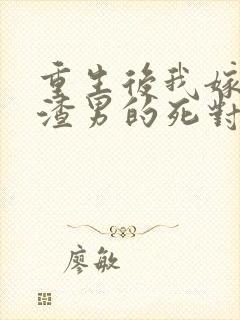 重生後我嫁
渣男的死對
廖敏